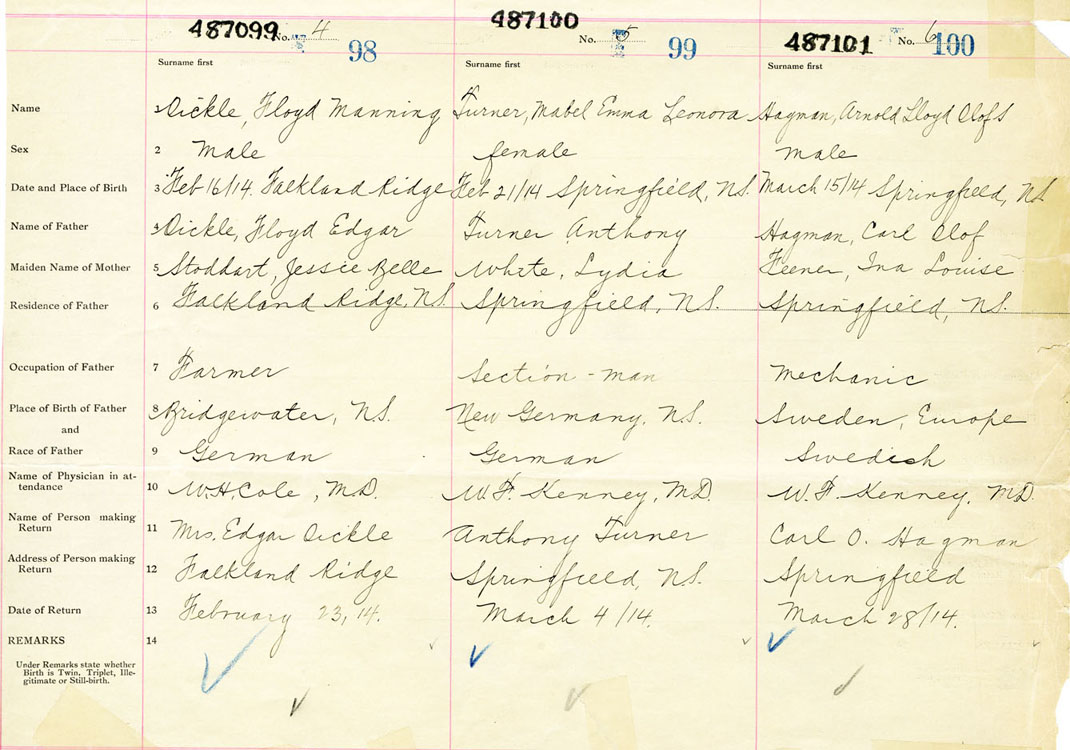 487099 No. 4 98 487100 No. 5 99 487101 No. 6 100
Surname first Surname first Surname first
Name 1 Dickle, Floyd Manning Turner, Mabel Emma Leonora Hagman, Arnold Lloyd Olofs
Sex 2 Male female male
Date and Place of Birth 3 Feb 16/14, Falkland Ridge Feb 21/14 Springfield, N.S. March 15/14 Springfield, N.S.
Name of Father 4 Dickle, Floyd Edgar Turner Anthony Hagman, Carl Olof
Maiden Name of Mother 5 Stoddart, Jessie Belle White, Lydia Feener, Ina Louise
Residence of Father 6 Falkland Ridge, N.S. Springfield, N.S. Springfield, N.S.
Occupation of Father 7 Farmer Section-man Mechanic
Place of Birth of Father 8 Bridgewater, N.S. New Germany, N.S. Sweden, Europe
and
Race of Father 9 German German Swedish
Name of Physician in at-
tendance 10 W.H. Cole, M.D. W.F. Kenney, M.D. W.F. Kenney, M.D.
Name of Person making
Return 11 Mrs. Edgar Dickle Anthony Turner Carl O. Hagman
Address of Person making
Return 12 Falkland Ridge Springfield, N.S. Springfield
Date of Return 13 February 23, 14. March 4/14. March 28/14.
REMARKS 14
Under Remarks state whether
Birth is Twin, Triplet, Ille-
gitimate or Still-birth.